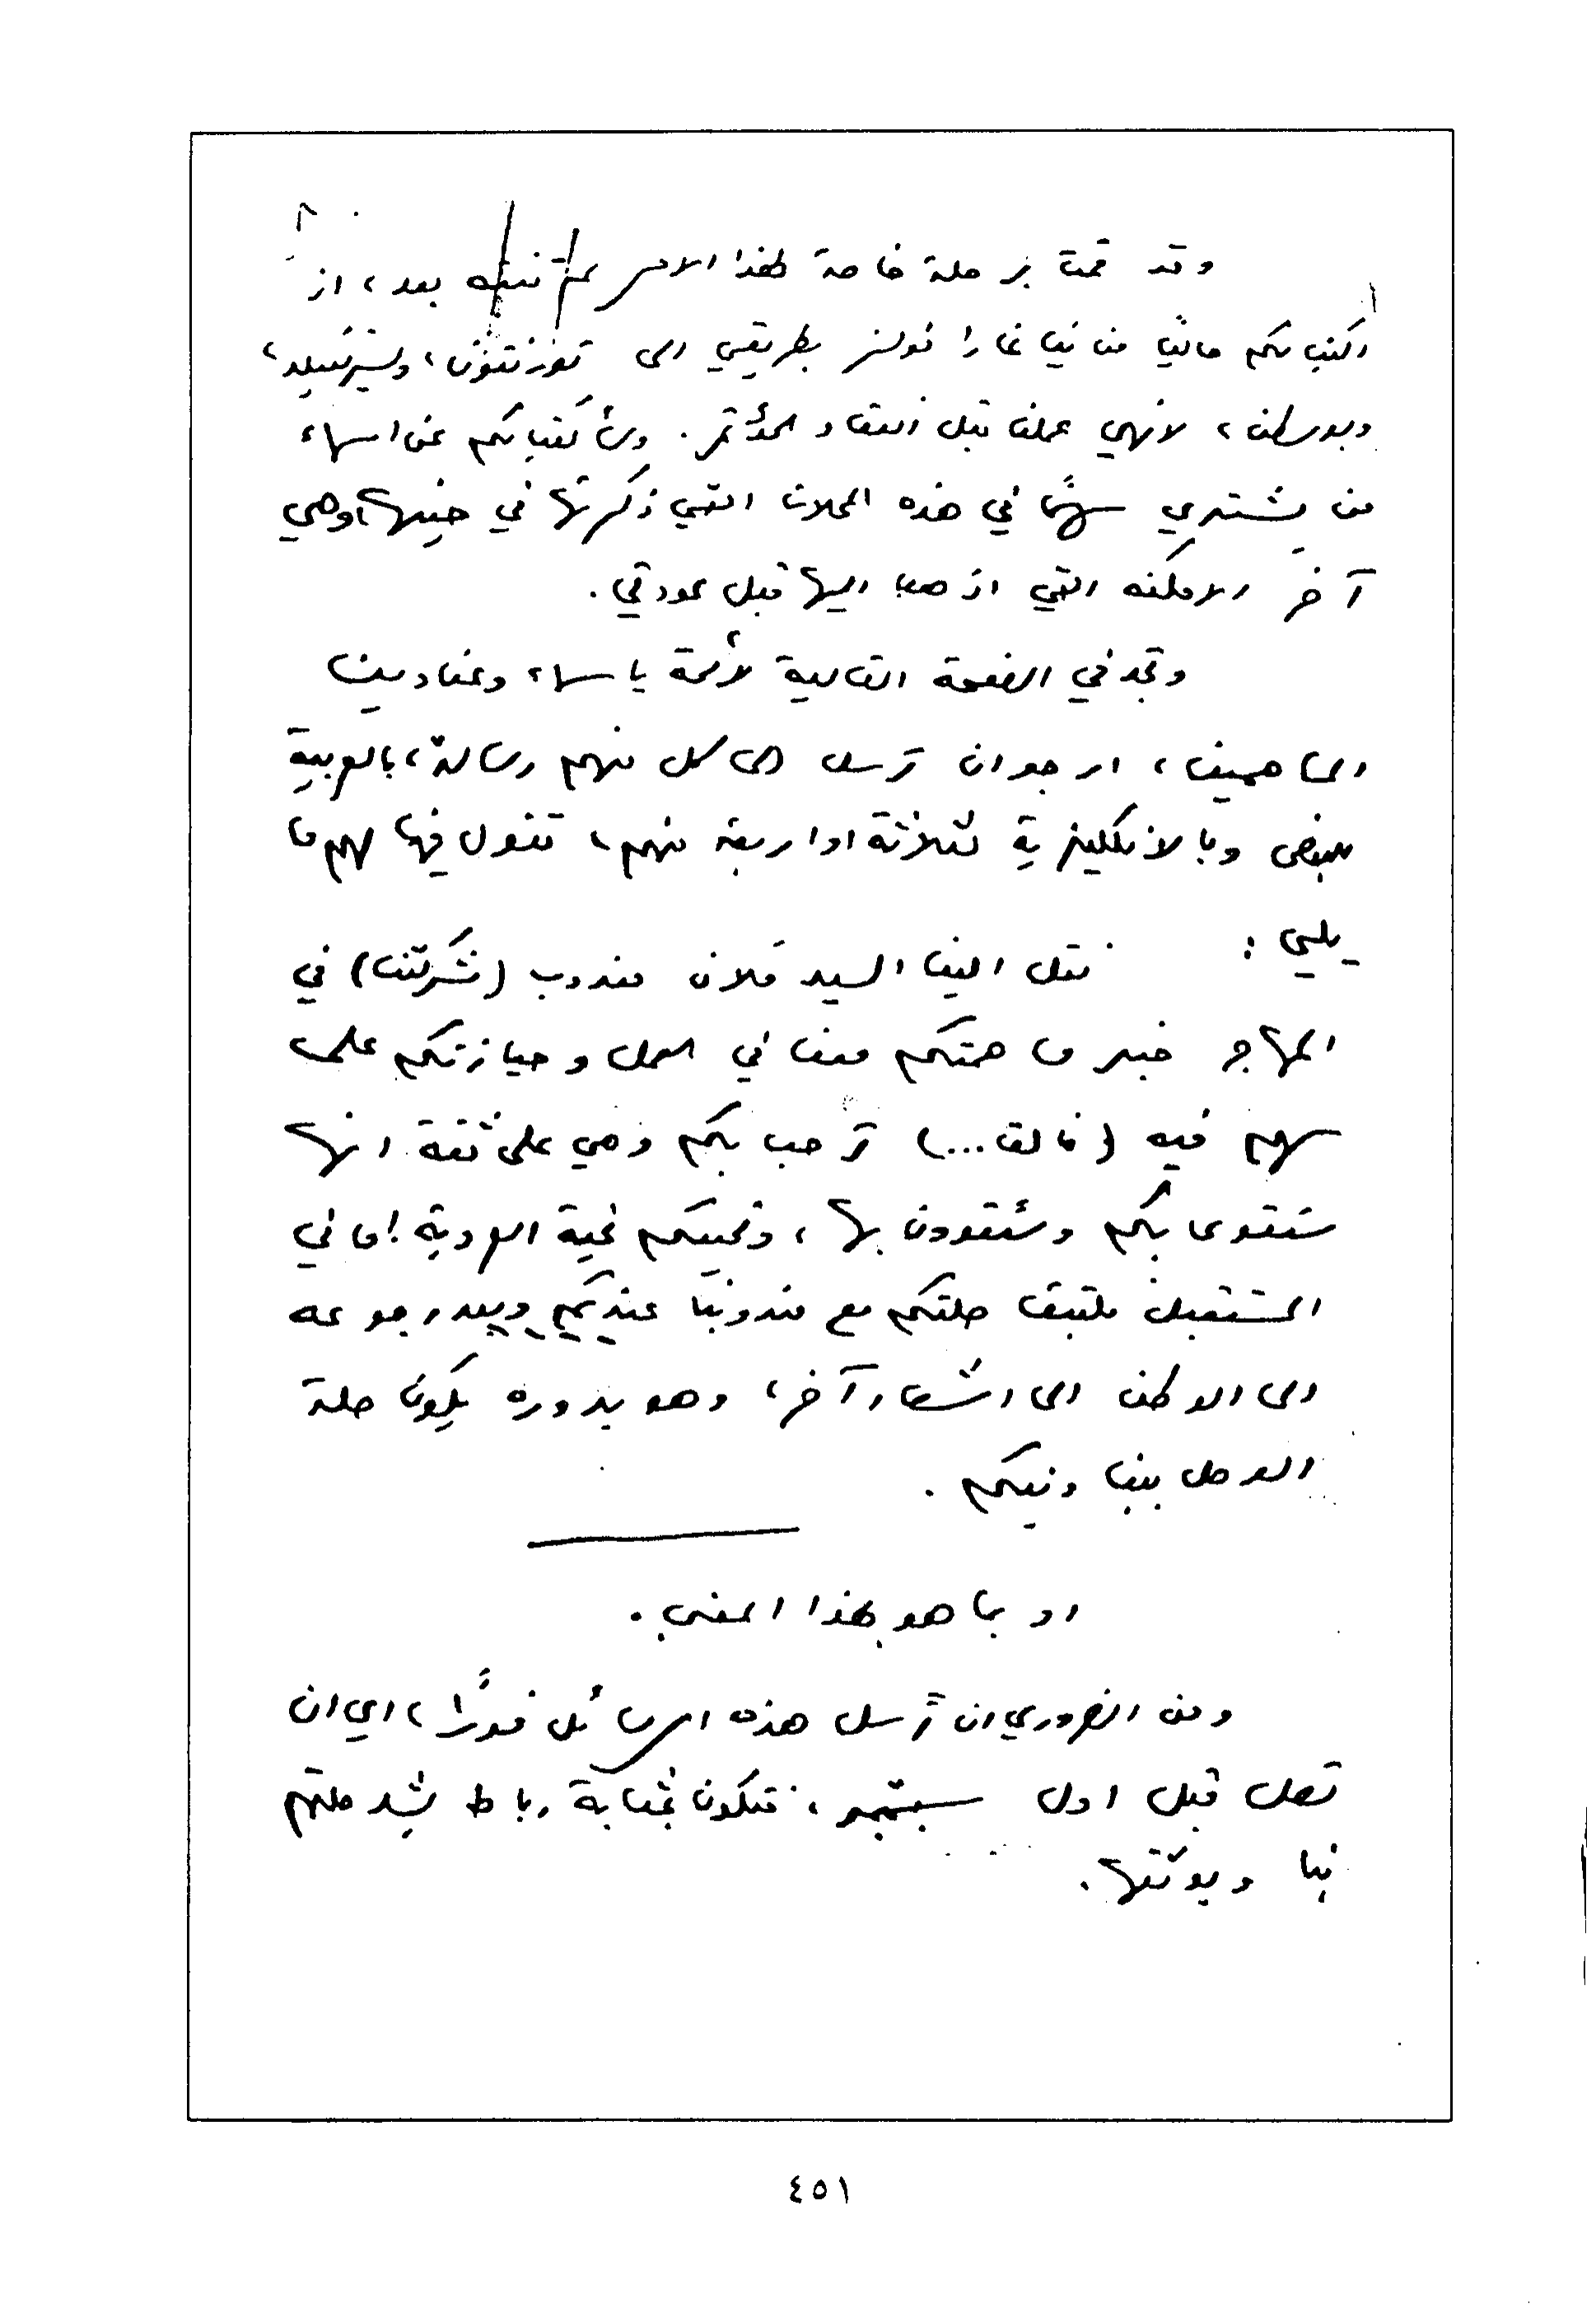 ٨
وقد قمت برحلة خاصة لهذا الامر لم تنته بعد، اذ
اكتب لكم حاليًا من نياغارا فولز بطريقي الى تورنتو، وسبرنغفيلد،
وبوسطن، لانهي عملنا قبل انعقاد المؤتمر. وسأكتب لكم عن اسماء
من يشتري سهمًا في هذه المحلات التي ذكرتها في حينها، وهي
آخر الامكنه التي اذهب اليها قبل عودتي.
وتجد في الصفحة التالية لائحة باسماء وعناوين
المساهمين، ارجو ان ترسل الى كل منهم رسالة، بالعربية
للبعض وبالانكليزية لثلاثة او اربعة منهم، تقول فيها لهم ما
يلي :
نقل الينا السيد فلان مندوب (شركتنا) في
المهاجر خبر مساهمتكم معنا في العمل وحيازتكم على
سهم فيه (فالـ...) ترحب بكم وهي على ثقة انها
ستقوى بكم وستقوون بها، وتحييكم تحية العروبة! اما في
المستقبل فلتبق صلتكم مع مندوبنا عنديكم وبعد رجوعه
الى الوطن الى اشعار آخر، وهو بدوره يكون صلة
الوصل بيننا وبينكم.
او بما هو بهذا المعنى.
ومن الضروري ان ترسل هذه الرسائل فورًا، اي ان
تصل قبل اول سبتمبر، فتكون بمثابة رباط يشد صلتهم
بنا ويوثقها.
٤٥١